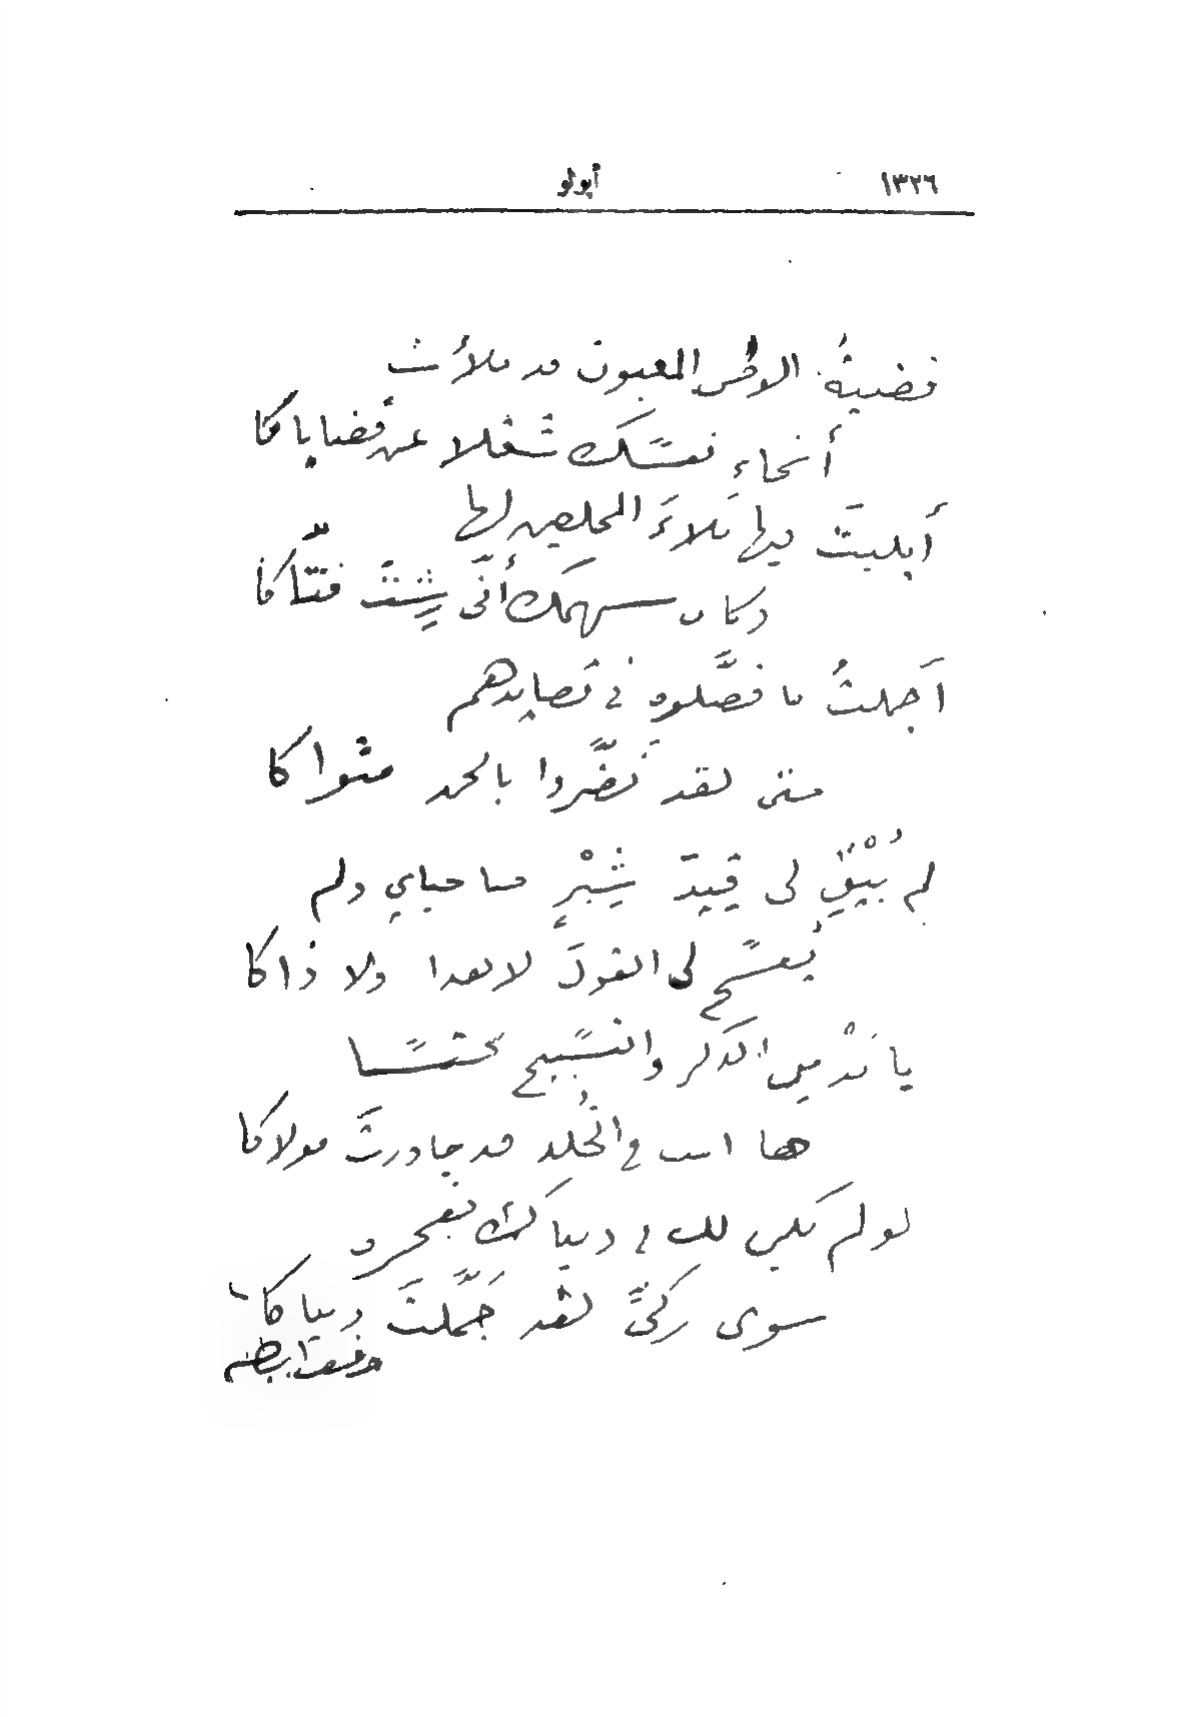 ١٣٢٦
أبولو
قضيةُ الوطن المغبون قد ملأت
أنحاءِ نفسك شغلا عن قضاياكا
أبليتَ فيها بَلاءَ المخلصين لها
وكان سهمك أنَّى شئتَ فتّاكا
أجملتُ ما فصَّلوه في قصايدهم
حتى لقد نَضَّروا بالحمد مثواكا
لم يُبْقِ لى قِيدَ شِبْرٍ صاحباي ولم
يُفسح لى القولَ لا هذا ولا ذاكا
يا مُدْمِن الذكر والتسبيح محتسبا
ها أنت في الخُلد قد جاورتَ مولاكا
لو لم يكن لك في دنياك مفخرة
سوى زكىّ لقد جَمَّلتَ دنياكا
حفنى